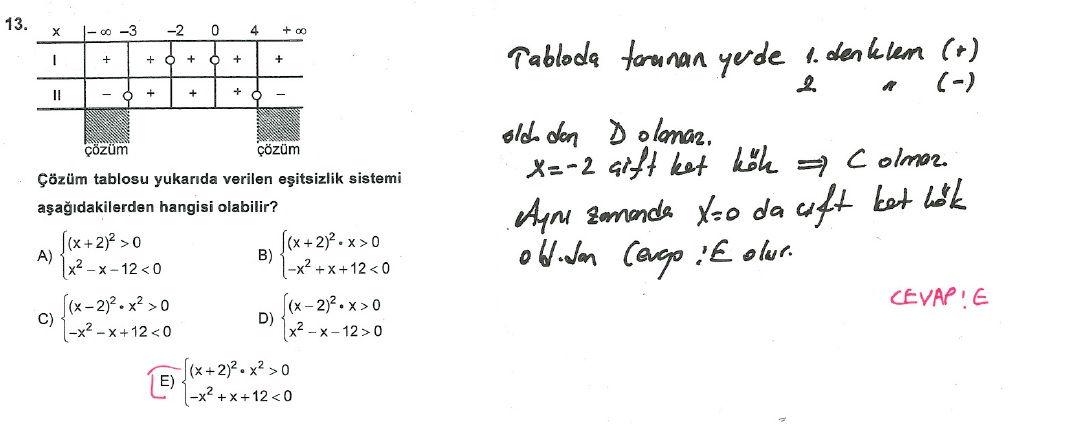 13.
x | – ∞ –3 –2 0 4 + ∞
I + + + + +
II – + + + –
çözüm çözüm
Çözüm tablosu yukarıda verilen eşitsizlik sistemi
aşağıdakilerden hangisi olabilir?
A) {(x+2)² > 0
x² – x – 12 < 0
B) {(x+2)² • x > 0
–x² + x + 12 < 0
C) {(x – 2)² • x² > 0
–x² – x + 12 < 0
D) {(x – 2)² • x > 0
x² – x – 12 > 0
E) {(x + 2)² • x² > 0
–x² + x + 12 < 0
Tabloda taranan yerde 1. denklem (+)
2 " (-)
old. dan D olamaz.
x=-2 çift kat kök ⇒ C olmaz.
Aynı zamanda x=0 da çift kat kök
old.dan Cevap : E olur.
CEVAP: E